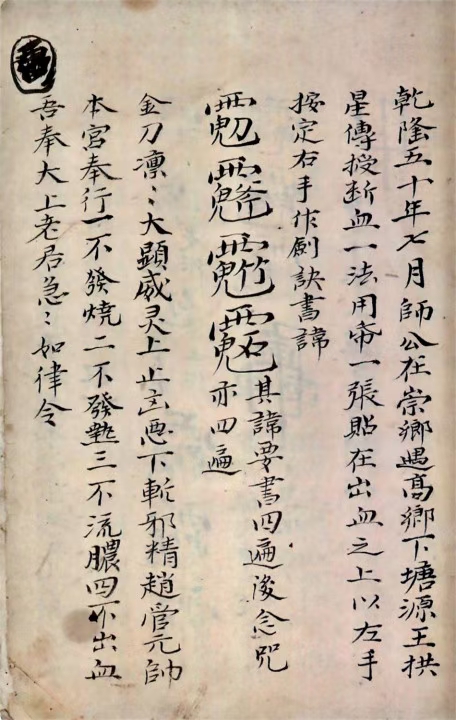 乾隆五十年七月師公在崇鄉遇高鄉下塘源王拱
星傳授断血一法用帋一張貼在出血之上以左手
按定右手作劍訣書諱
其諱要書四遍後念咒
亦四遍
金刀凛〻大顯威灵上止凶恶下斬邪精趙官元帥
本宮奉行一不發燒二不發熱三不流膿四不出血
吾奉大上老君急〻如律令